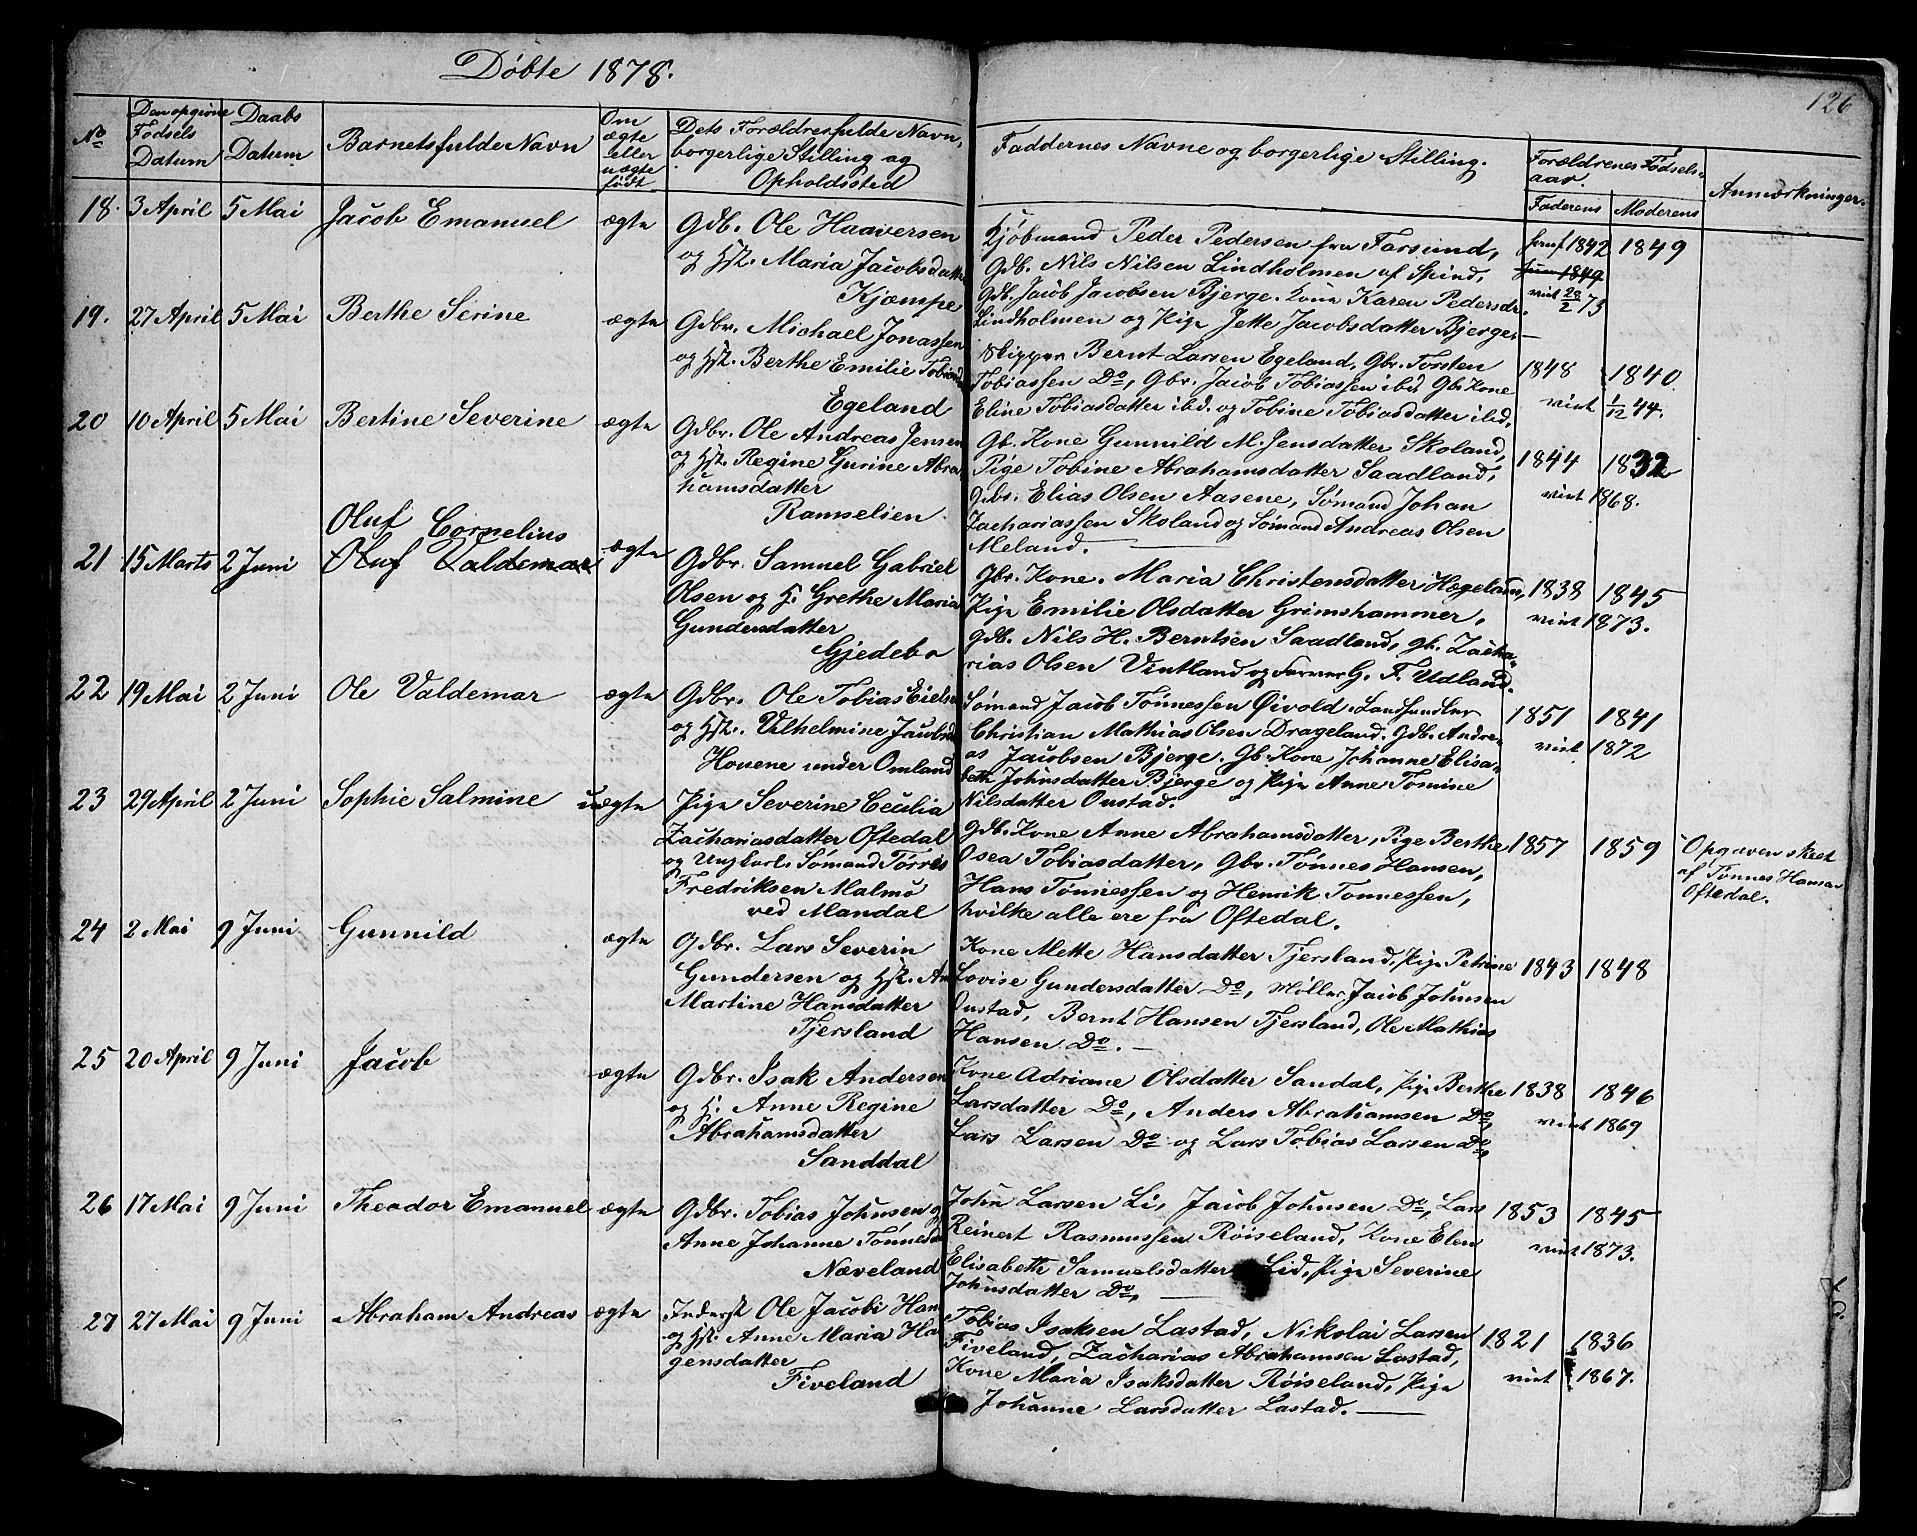 Døbte 1878.
126
No
Den opgivne
Fødsels
Datum
Daabs
Datum
Barnets fulde Navn
Om
ægte
eller
uægte
født
Dets Forældres fulde Navn,
borgerlige Stilling og
Opholdssted
Faddernes Navne og borgerlige Stilling.
Forældrenes Fødsels-
aar.
Faderens
Moderens
Anmærkninger.
18. 3 April 5 Mai Jacob Emanuel ægte
Gdb. Ole Haaversen
og Hst. Maria Jacobsdatter
Kjæmpe
Kjøbmand Peder Pedersen fra Farsund,
Gdb. Nils Nilsen Lindholmen af Spind,
Gdb. Jacob Jacobsen Bjerge. Kone Karen Pedersdr.
Lindholmen og Pige Jette Jacobsdatter Bjerge.
1842 1849
1849
viet 28/2 73
19. 27 April 5 Mai Berthe Serine ægte
Gdbr. Michael Jonassen
og Hst. Berthe Emilie Tobiasd
Egeland
Skipper Bernt Larsen Egeland, Gbr. Torsten
Tobiassen Do, Gbr. Jacob Tobiassen ibd. Gb. Kone
Eline Tobiasdatter ibd. og Tobine Tobiasdatter ibd.
1848 1840.
viet 1/12 44.
20 10 April 5 Mai Bertine Severine ægte
Gdbr. Ole Andreas Jensen
og Hst. Regine Gurine Abra
hamsdatter
Ramselien
Gb. Kone Gunnild M. Jensdatter Skoland,
Pige Tobine Abrahamsdatter Saadland,
Gbr. Elias Olsen Aasene, Sømand Johan
Zachariassen Skoland og Sømand Andreas Olsen
Meland.
1844 1832
viet 1868.
Oluf Cornelius
21 15 Marts 2 Juni Oluf Valdemar ægte
Gdbr. Samuel Gabriel
Olsen og H. Grethe Maria
Gundersdatter
Gjedebo
Gbr. Kone. Maria Christensdatter Hægeland,
Pige Emilie Olsdatter Grimshammer,
Gdb. Nils H. Berntsen Saadland, gb. Zacha-
rias Olsen Vintland og Farver G. F. Udland.
1838 1845
viet 1873.
22 19 Mai 2 Juni Ole Valdemar ægte
Gdbr. Ole Tobias Eielsen
og Hst. Vilhelmine Jacobsd
Houene under Omland
Sømand Jacob Tønnessen Øivold. Landhandler
Christian Mathias Olsen Drageland. Gdb. Andre-
as Jacobsen Bjerge. Gb. Kone Johanne Elisa-
beth Johnsdatter Bjerge og Pige Anne Tomine
Nilsdatter Onstad.
1851 1841
viet 1872
23 29 April 2 Juni Sophie Salmine uægte
Pige Severine Cecilia
Zachariasdatter Oftedal
og Ungkarl Sømand Tørris
Fredriksen Malmø
ved Mandal
Gdb. Kone Anne Abrahamsdatter, Pige Berthe
Osea Tobiasdatter, Gbr. Tønnes Hansen,
Hans Tønnessen og Henrik Tønnessen,
hvilke alle ere fra Oftedal.
1857 1859
Opgaven skeet
af Tønnes Hansen
Oftedal.
24 2 Mai 9 Juni Gunnild ægte
Gdbr. Lars Severin
Gundersen og Hst. An
Martine Hansdatter
Tjersland
Kone Mette Hansdatter Tjersland, Pige Petrine
Lovise Gundersdatter Do, Møller Jacob Johnsen
Onstad, Bernt Hansen Tjersland, Ole Mathias
Hansen Do.
1843 1848
25 20 April 9 Juni Jacob ægte
Gdbr. Isak Andersen
og H. Anne Regine
Abrahamsdatter
Sanddal
Kone Adriane Olsdatter Sandal, Pige Berthe
Larsdatter Do, Anders Abrahamsen Do,
Lars Larsen Do og Lars Tobias Larsen Do,
1838 1846
viet 1869
26 17 Mai 9 Juni Theodor Emanuel ægte
Gdbr. Tobias Johnsen og
Anne Johanne Tønnesd
Næveland
John Larsen Li, Jacob Johnsen Do, Lars
Reinert Rasmussen Røiseland, Kone Elen
Elisabeth Samuelsdatter Lid, Pige Severine
Johnsdatter Do,
1853 1845
viet 1873.
27 27 Mai 9 Juni Abraham Andreas ægte
Inderst Ole Jacobi Han
og Hst. Anne Maria Ha
gensdatter
Fiveland
Tobias Isaksen Lastad, Nikolai Larsen
Fiveland, Zacharias Abrahamsen Lastad,
Kone Maria Isaksdatter Røiseland, Pige
Johanne Larsdatter Lastad.
1821 1836
viet 1867.